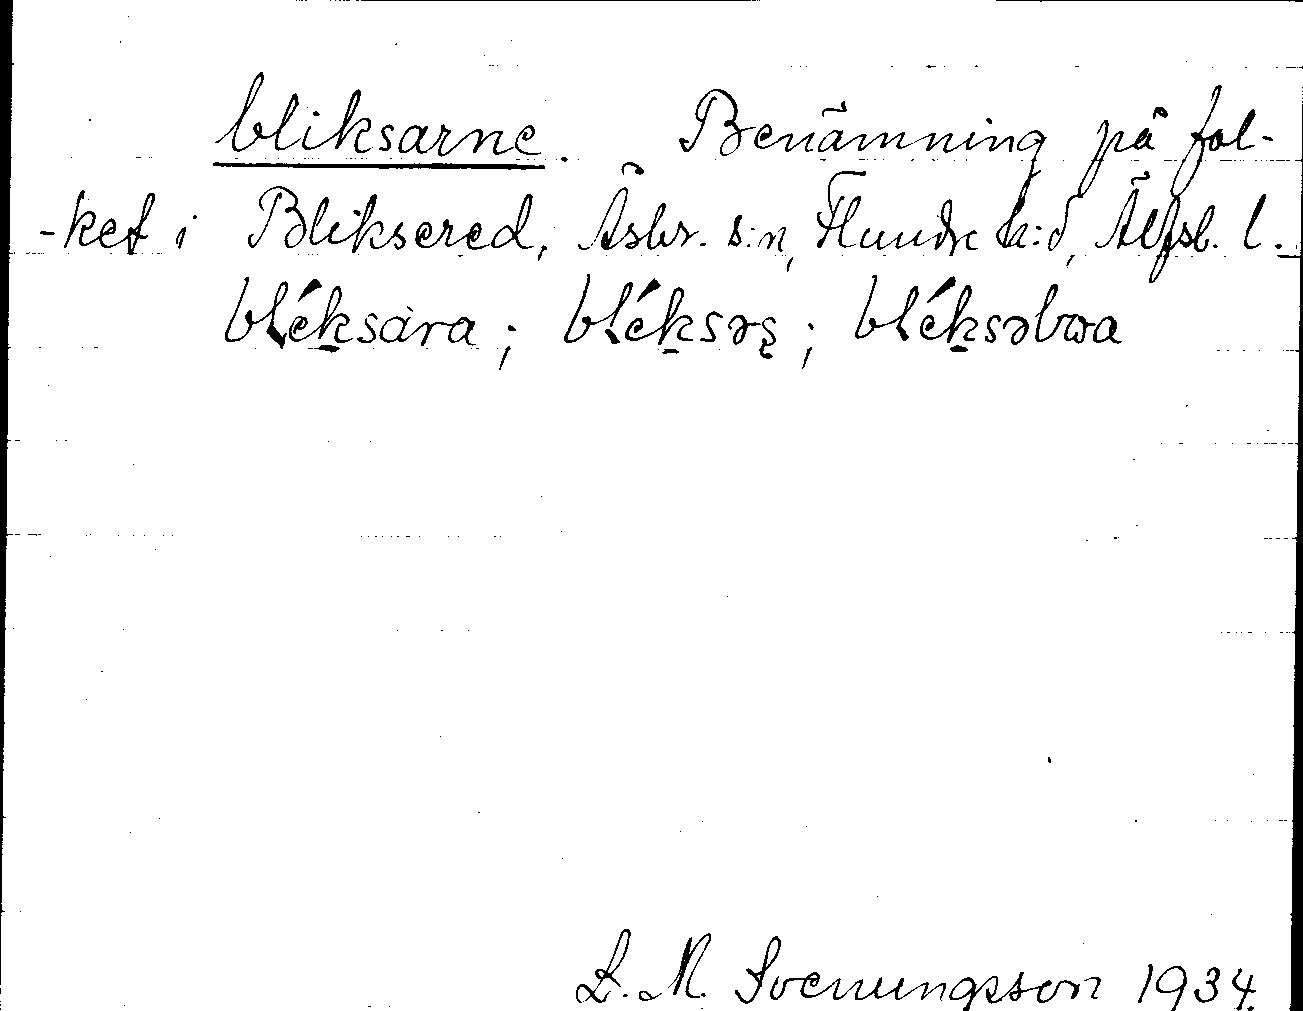 bliksarne. Benämning på fol-
-ket i Bliksered, Åsbr. s:n, Flundre h:d, Älfsb. l.
bléksàra; bléksəʂ; bléksəbωa
S. M. Svenungsson 1934.